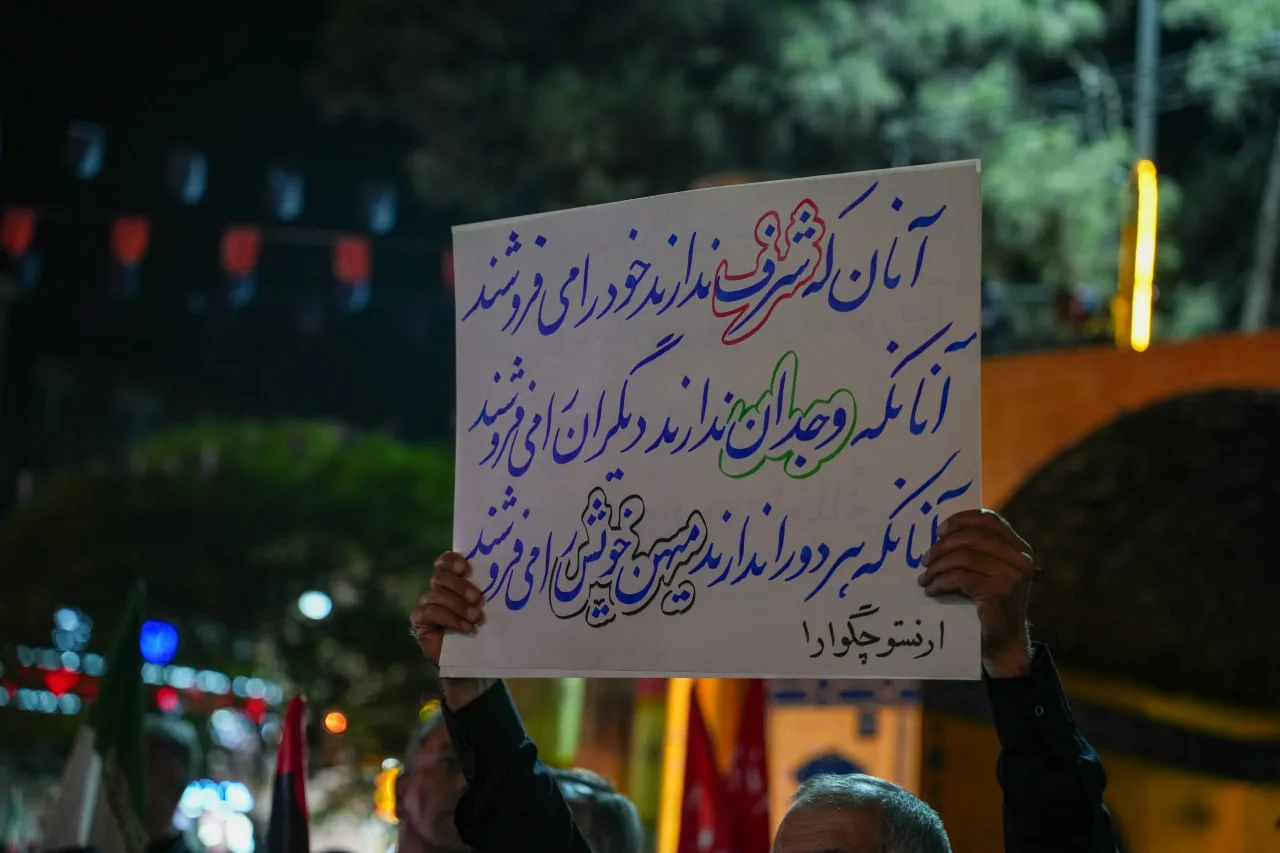 آنان که شرف ندارند خود را می فروشند
آنانکه وجدان ندارند دیگران را می فروشند
آنانکه هر دو را ندارند میهن خویش را می فروشند
ارنستو چگوارا